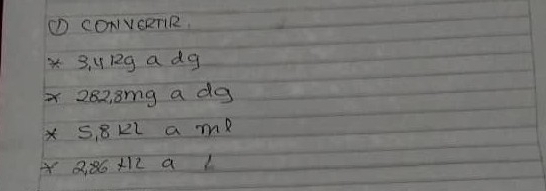 ① CONVERTIR.
* 3,4 Kg a dg
* 282,8mg a dg
* 5,8 Kl a ml
* 2,86 Hl a l